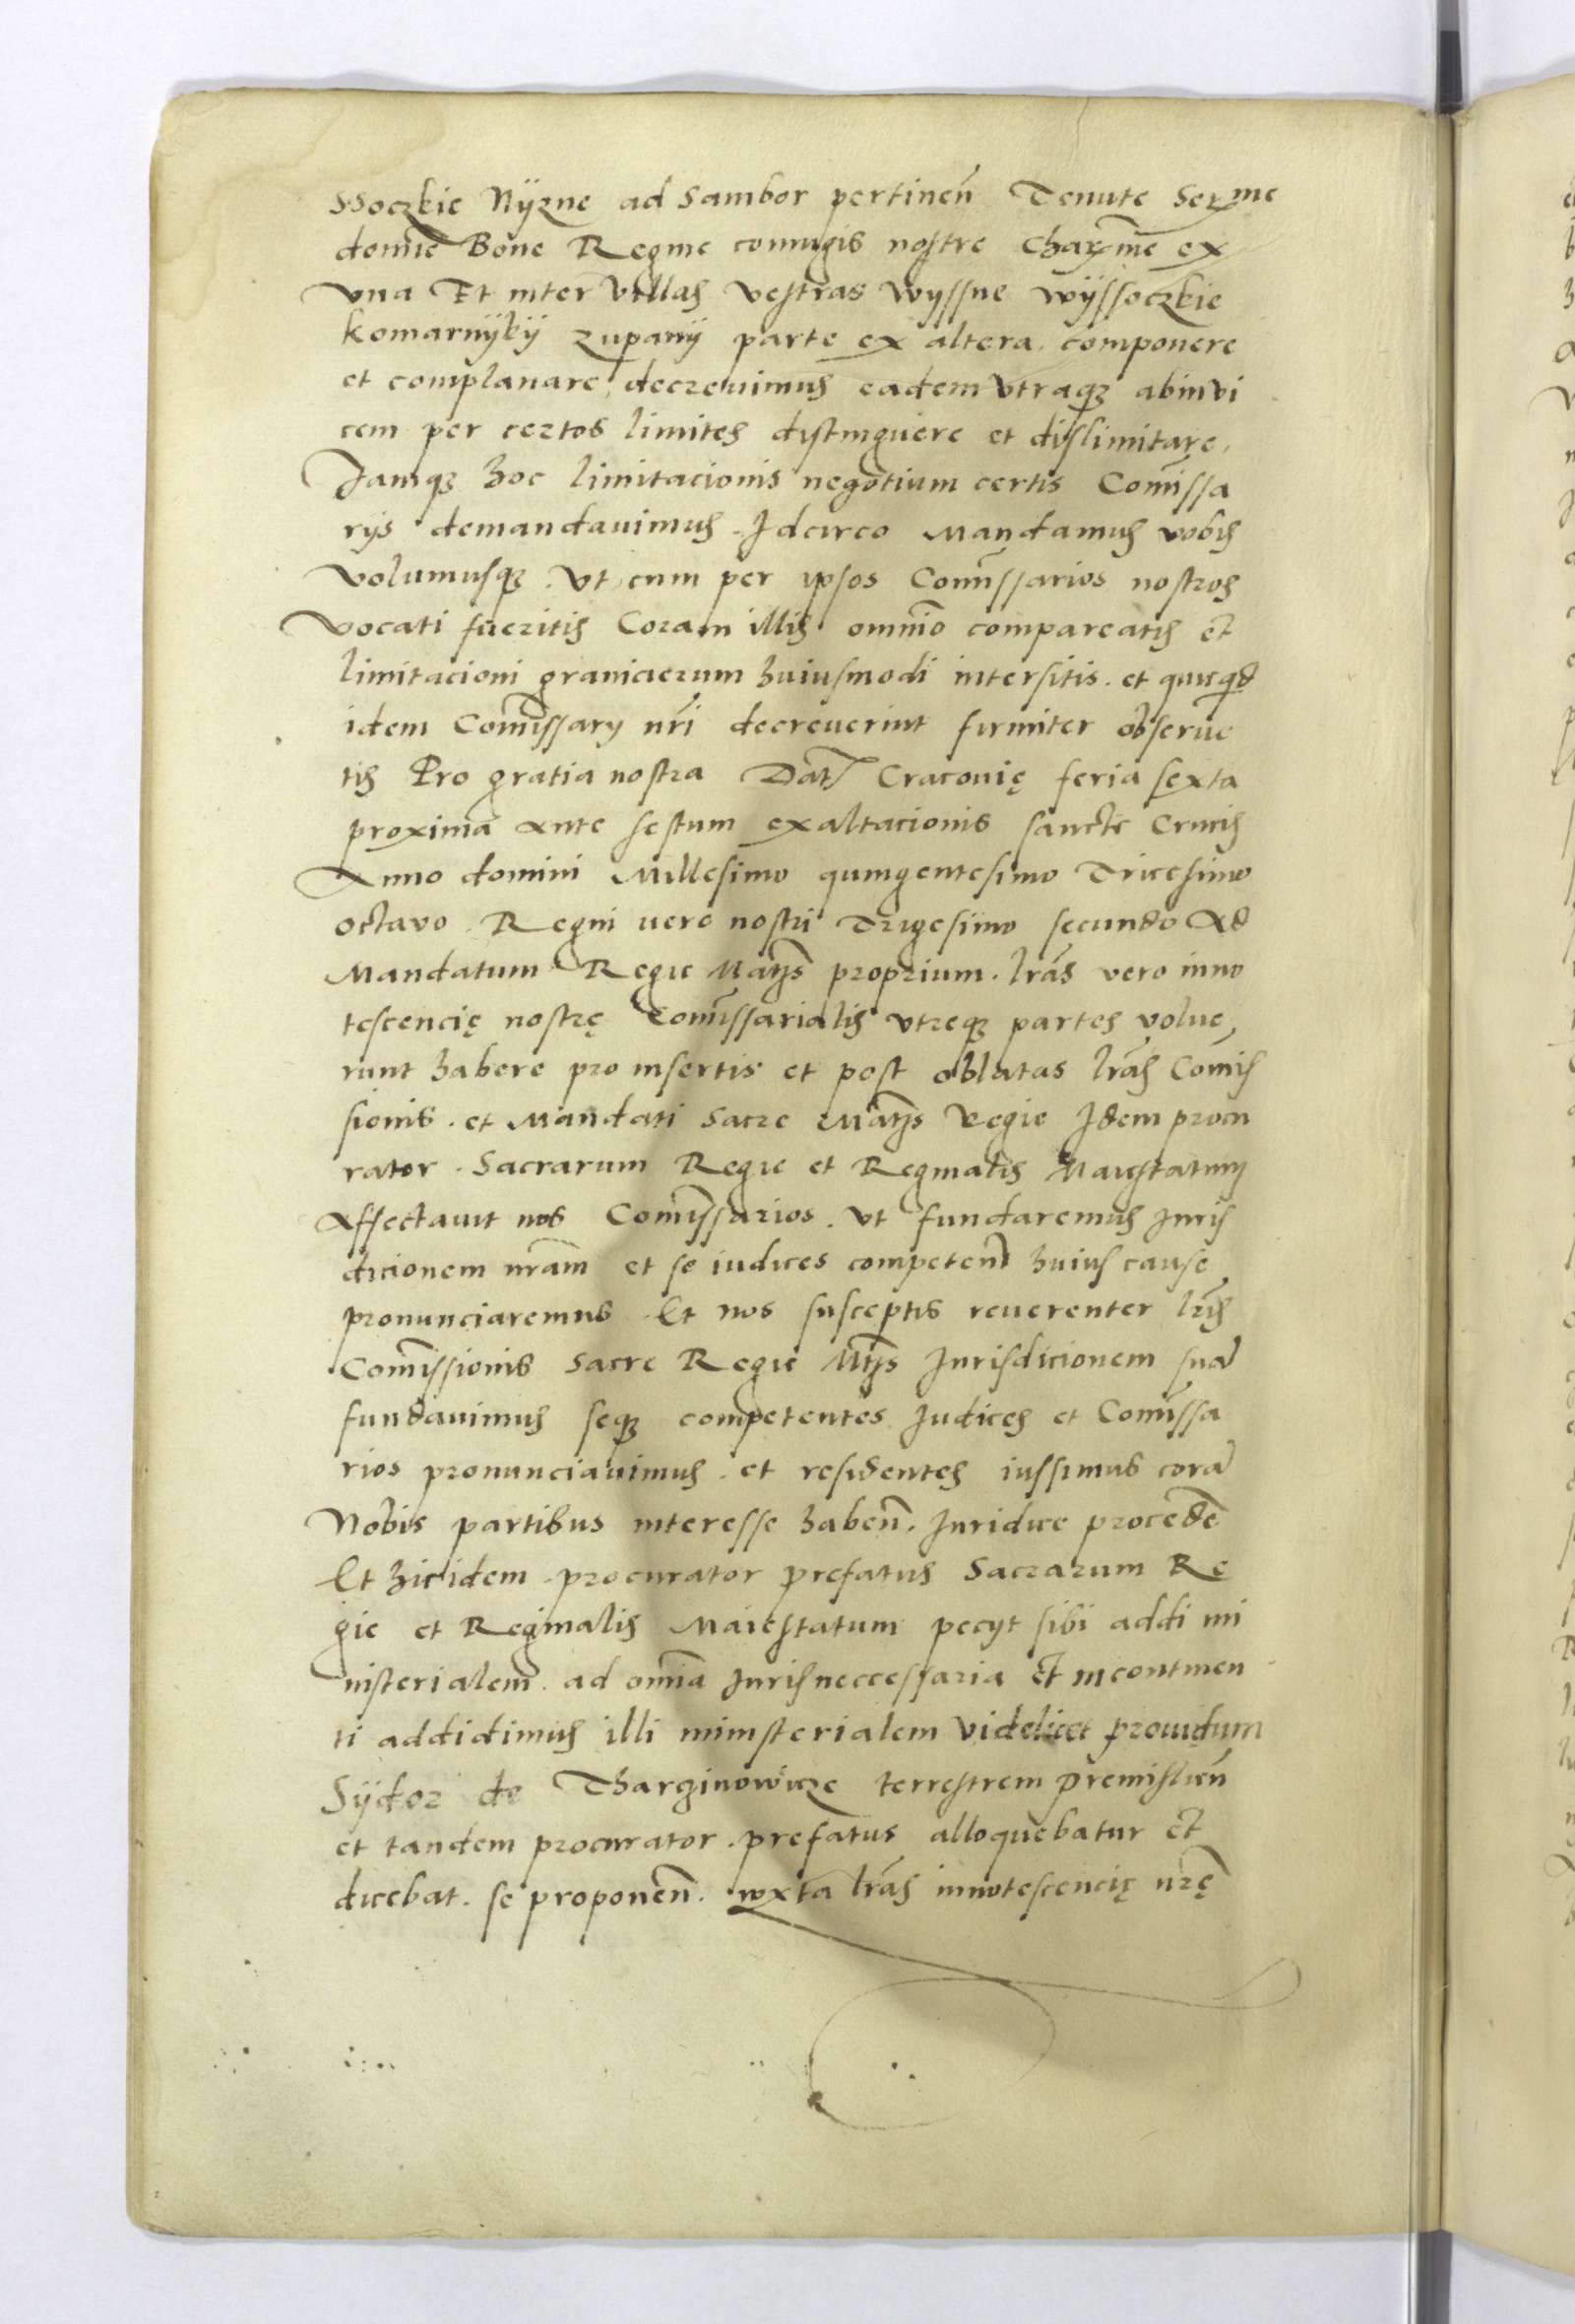 ssoczkie Nÿzne ad Sambor pertineñ Tenute Serme
domīe Bone Regine coniugis nostre Charmē ex
vna Et inter villas vestras Wyssne Wÿssoczkie
komarnÿkÿ zupanÿ parte ex altera, componere
et complanare, decrevimus eadem vtraqȝ abinvi
cem per certos limites distinguere et dislimitare,
Jamqȝ hoc limitacionis negotium certis Com̄issa
rys demandauimus. Jdcirco Mandamus vobis
volumusqȝ. vt cum per ipsos Com̄issarios nostros
vocati fueritis Coram illis omnīo compareatis et
limitacioni granicierum huiusmodi intersitis. et quicqd
idem Com̄issary nr̄i decreverint firmiter observe
tis Pro gratia nostra Dat̄ Cracouię feria sexta
proxima ante festum exaltacionis sancte Crucis
Anno domini Millesimo quingentesimo Tricesimo
octavo. Regni vero nostri Trigesimo secundo Ad
Mandatum Regie Mat̄ȝs proprium. lr̄as vero inno
tescencię nostrę Com̄issarialis vtreqȝ partes volue,
runt habere pro insertis et post oblatas lr̄as Com̄is
sionis. et Mandati Sacre Mat̄ȝs Regie Jdem procu
rator. Sacrarum Regie et Reginalis Maiestatum
Affectauit nos Com̄issarios. vt fundaremus Juris
dicionem nr̄am et se iudices competen̄ huius cause
pronunciaremus. Et nos susceptis reverenter lr̄is
Com̄issionis Sacre Regie Mt̄ȝs Jurisdicionem suā
fundauimus seqȝ competentes Judices et Com̄issa
rios pronunciauimus. et residentes iussimus corā
Nobis partibus interesse haben̄. Juridice procedē
Et hic idem. procurator prefatus Sacrarum Re
gie et Reginalis Maiestatum pecyt sibi addi mi
nisterialem. ad om̄ia Juris neccessaria Et incontinen
ti addidimus illi ministerialem videlicet prouidum
Sÿdor de Tharginowicze terrestrem premislien̄
et tandem procurator. prefatus alloquebatur et
dicebat. se proponen̄. iuxta lr̄as innotescencię nr̄ę